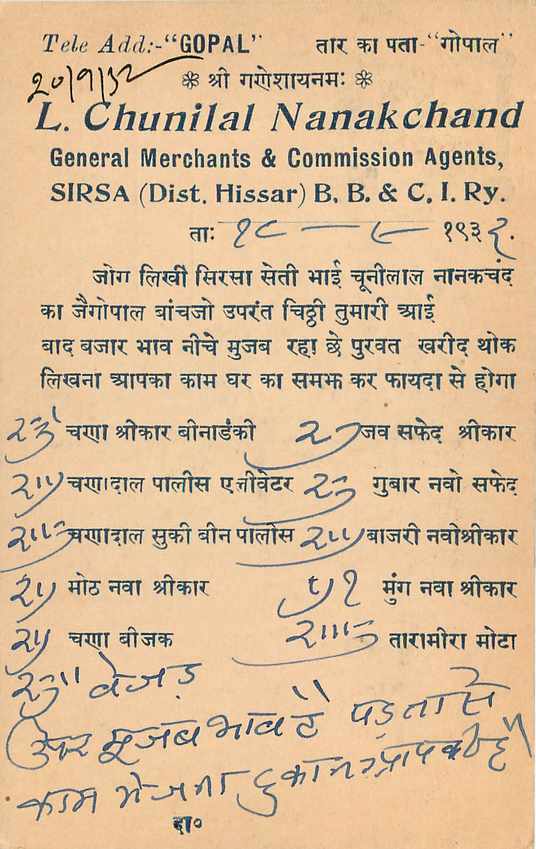 Tele Add:-“GOPAL” तार का पता-“गोपाल”
20/9/32
❀ श्री गणेशायनमः ❀
L. Chunilal Nanakchand
General Merchants & Commission Agents,
SIRSA (Dist. Hissar) B. B. & C. I. Ry.
ताः १८ — ९ १९३२.
जोग लिखी सिरसा सेती भाई चूनीलाल नानकचंद
का जैगोपाल बांचजो उपरंत चिठ्ठी तुमारी आई
बाद बजार भाव नीचे मुजब रहा छे पुरवत खरीद थोक
लिखना आपका काम घर का समझ कर फायदा से होगा
चणा श्रीकार बीनाडंकी जव सफेद श्रीकार
चणादाल पालीस एलीवेटर गुबार नवो सफेद
चणादाल सुकी बीन पालीस बाजरी नवोश्रीकार
मोठ नवा श्रीकार मुंग नवा श्रीकार
चणा बीजक तारामीरा मोटा
बेजड़
उपर मुजब भाव है पड़ता से
काम भेजना दुकान आपकी है
दा०